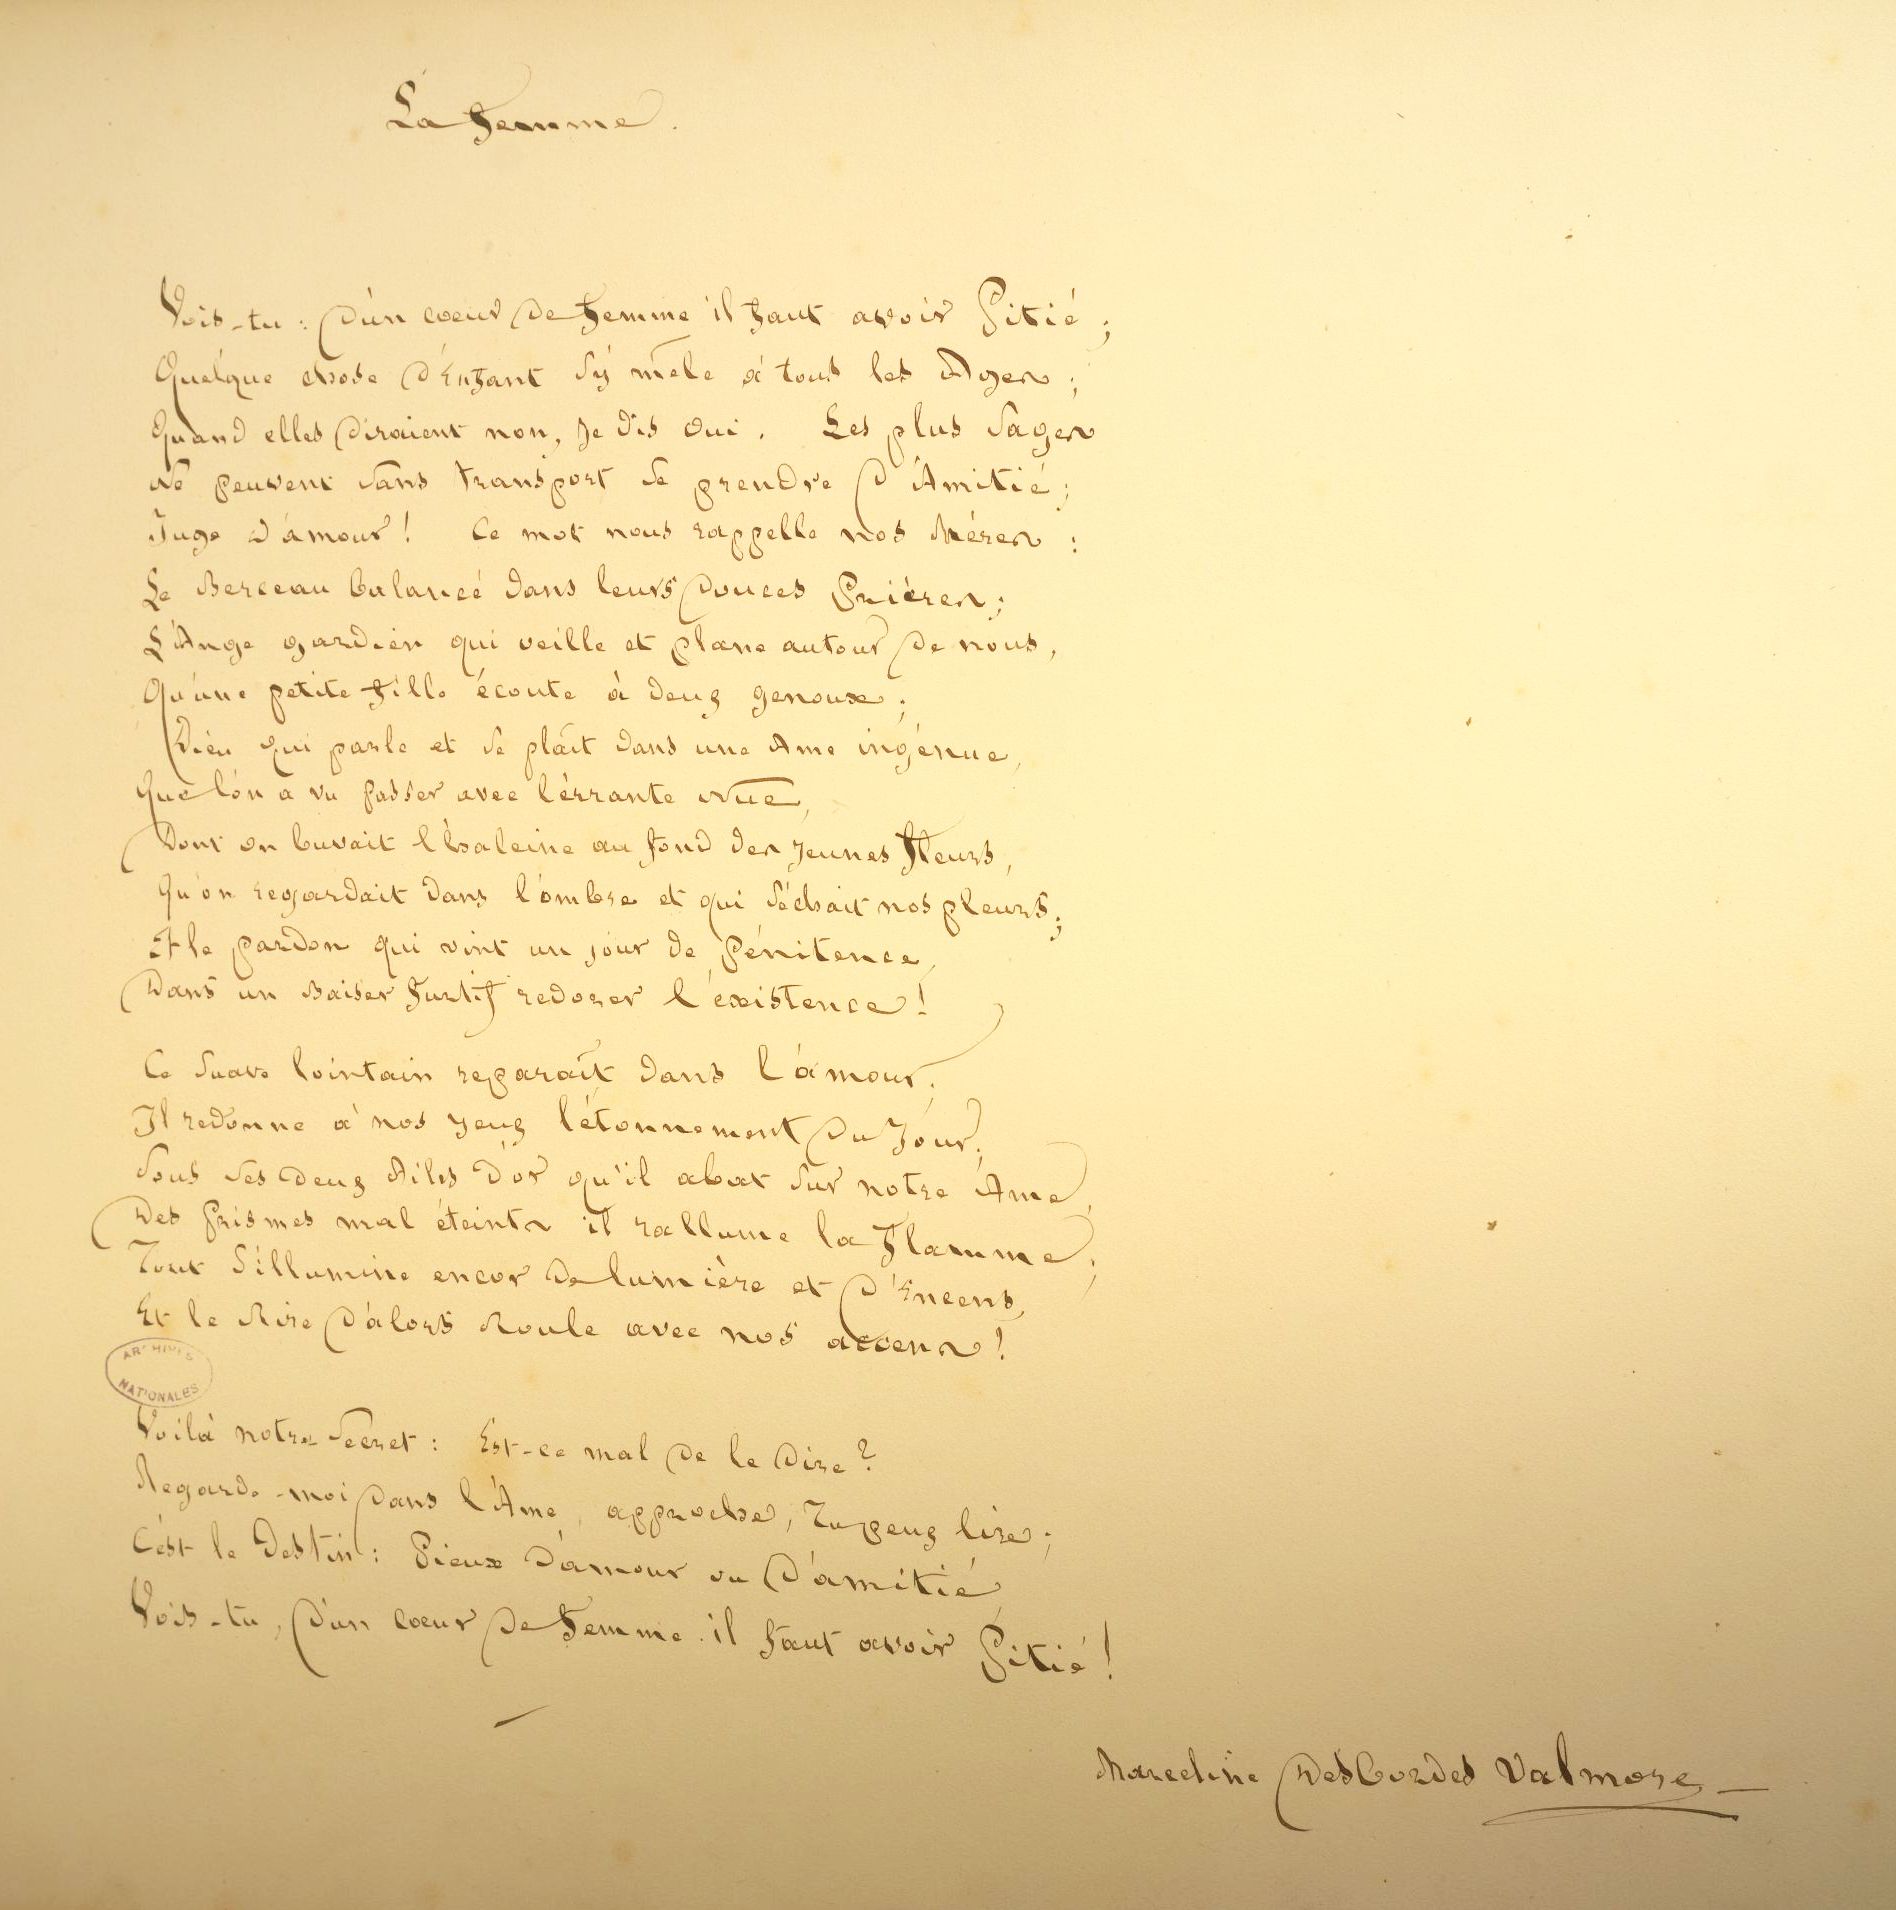 La Femme.
Vois-tu : d'un coeur de femme il faut avoir Pitié ;
Quelque chose d'Enfant s'y mêle à tous les Ages ;
Quand elles diraient non, je dis oui. Les plus Sages
Ne peuvent sans transport se prendre d'Amitié ;
Juge d'amour ! Ce mot nous rappelle nos Mères :
Le Berceau balancé dans leurs douces Prières ;
L'Ange gardien qui veille et plane autour de nous,
Qu'une petite fille écoute à deux genoux ;
Dieu qui parle et se plaît dans une Ame ingénue,
Que l'on a vu passer avec l'errante Nue,
Dont on buvait l'haleine au fond des jeunes fleurs,
Qu'on regardait dans l'ombre et qui séchait nos pleurs ;
Et le pardon qui vint un jour de Pénitence,
Dans un Baiser furtif redorer l'existence !
Ce suave lointain reparaît dans l'amour ;
Il redonne à nos yeux l'étonnement du Jour ;
Sous ses deux Ailes d'or qu'il abat sur notre Ame,
Des Prismes mal éteints il rallume la Flamme ;
Tout s'illumine encor de lumière et d'Encens,
Et le Rire d'alors Roule avec nos accens !
ARCHIVES
NATIONALES
Voilà notre Secret : Est-ce mal de le dire ?
Regarde-moi dans l'Ame, approche, Tu peux lire ;
C'est le Destin : Pieux d'amour ou d'amitié,
Vois-tu, d'un coeur de femme il faut avoir Pitié !
Marceline Desbordes Valmore